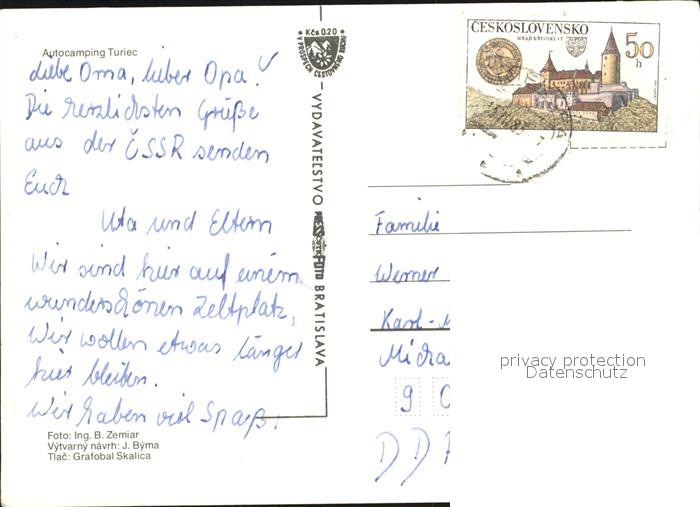 Autocamping Turiec
Liebe Oma, lieber Opa!
Die herzlichsten Grüße
aus der ČSSR senden
Euch
Uta und Eltern
Wir sind hier auf einem
wunderschönen Zeltplatz.
Wir wollen etwas länger
hier bleiben.
Wir haben viel Spaß.
Foto: Ing. B. Zemiar
Výtvarný návrh: J. Býma
Tlač: Grafobal Skalica
Kčs 0.20
V PROSPECH CESTOVNÉHO RUCHU
VYDAVATEĽSTVO PRESSFOTO BRATISLAVA
ČESKOSLOVENSKO
HRAD KŘIVOKLÁT
50
h
Familie
Werner
Karl-M
Micha
9 0
DDR
privacy protection
Datenschutz